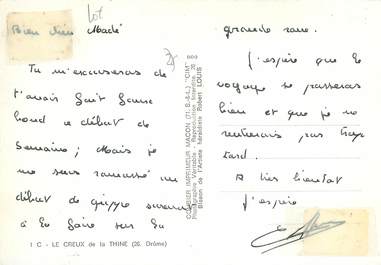 lot
Bien chère Madé
Tu m'excuseras de
t'avoir fait faux
bond ce début de
semaine; Mais je
me suis ramassé un
début de grippe
à la foire sur la
1 C - LE CREUX de la THINE (26. Drôme)
COMBIER IMPRIMEUR MACON (71. S.-&-L.) "CIM"
Photographie Véritable - Reproduction Interdite. 20
Blason de l'Artiste héraldiste Robert LOUIS
grande rue.
J'espère que le
voyage se passeras
bien et que je ne
rentrerais pas trop
tard.
A très bientot
j'espère